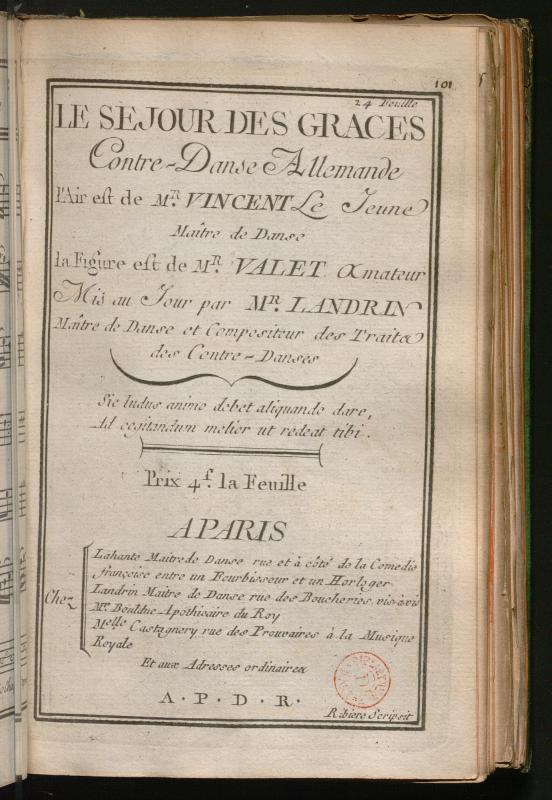 101
24 Feuille
LE SEJOUR DES GRACES
Contre-Danse Allemande
l'Air est de Mr. VINCENT Le Jeune
Maître de Danse
la Figure est de MR. VALET Amateur
Mis au Jour par MR. LANDRIN
Maître de Danse et Compositeur des Traits
des Contre-Danses
Sic ludus animo debet aliquando dare,
Ad cogitandum melior ut redeat tibi.
Prix 4s. la Feuille
A PARIS
Chez
Lahante Maitre de Danse rue et à côté de la Comedie
françoise entre un Fourbisseur et un Horloger
Landrin Maître de Danse rue des Boucheries vis-à-vis
Mr. Boulduc Apothicaire du Roy
Melle Castagnery rue des Prouvaires à la Musique
Royale
Et aux Adresses ordinaires
A. P. D. R.
Ribiere Scripsit